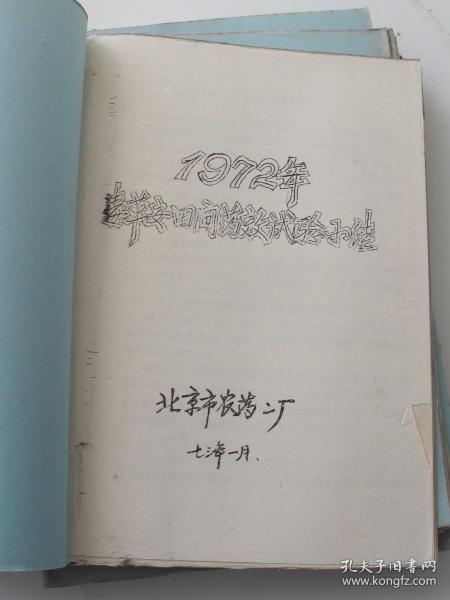 1972年
田间药效试验小结
北京市农药二厂
七三年一月.
孔夫子旧书网
www.kongfz.com